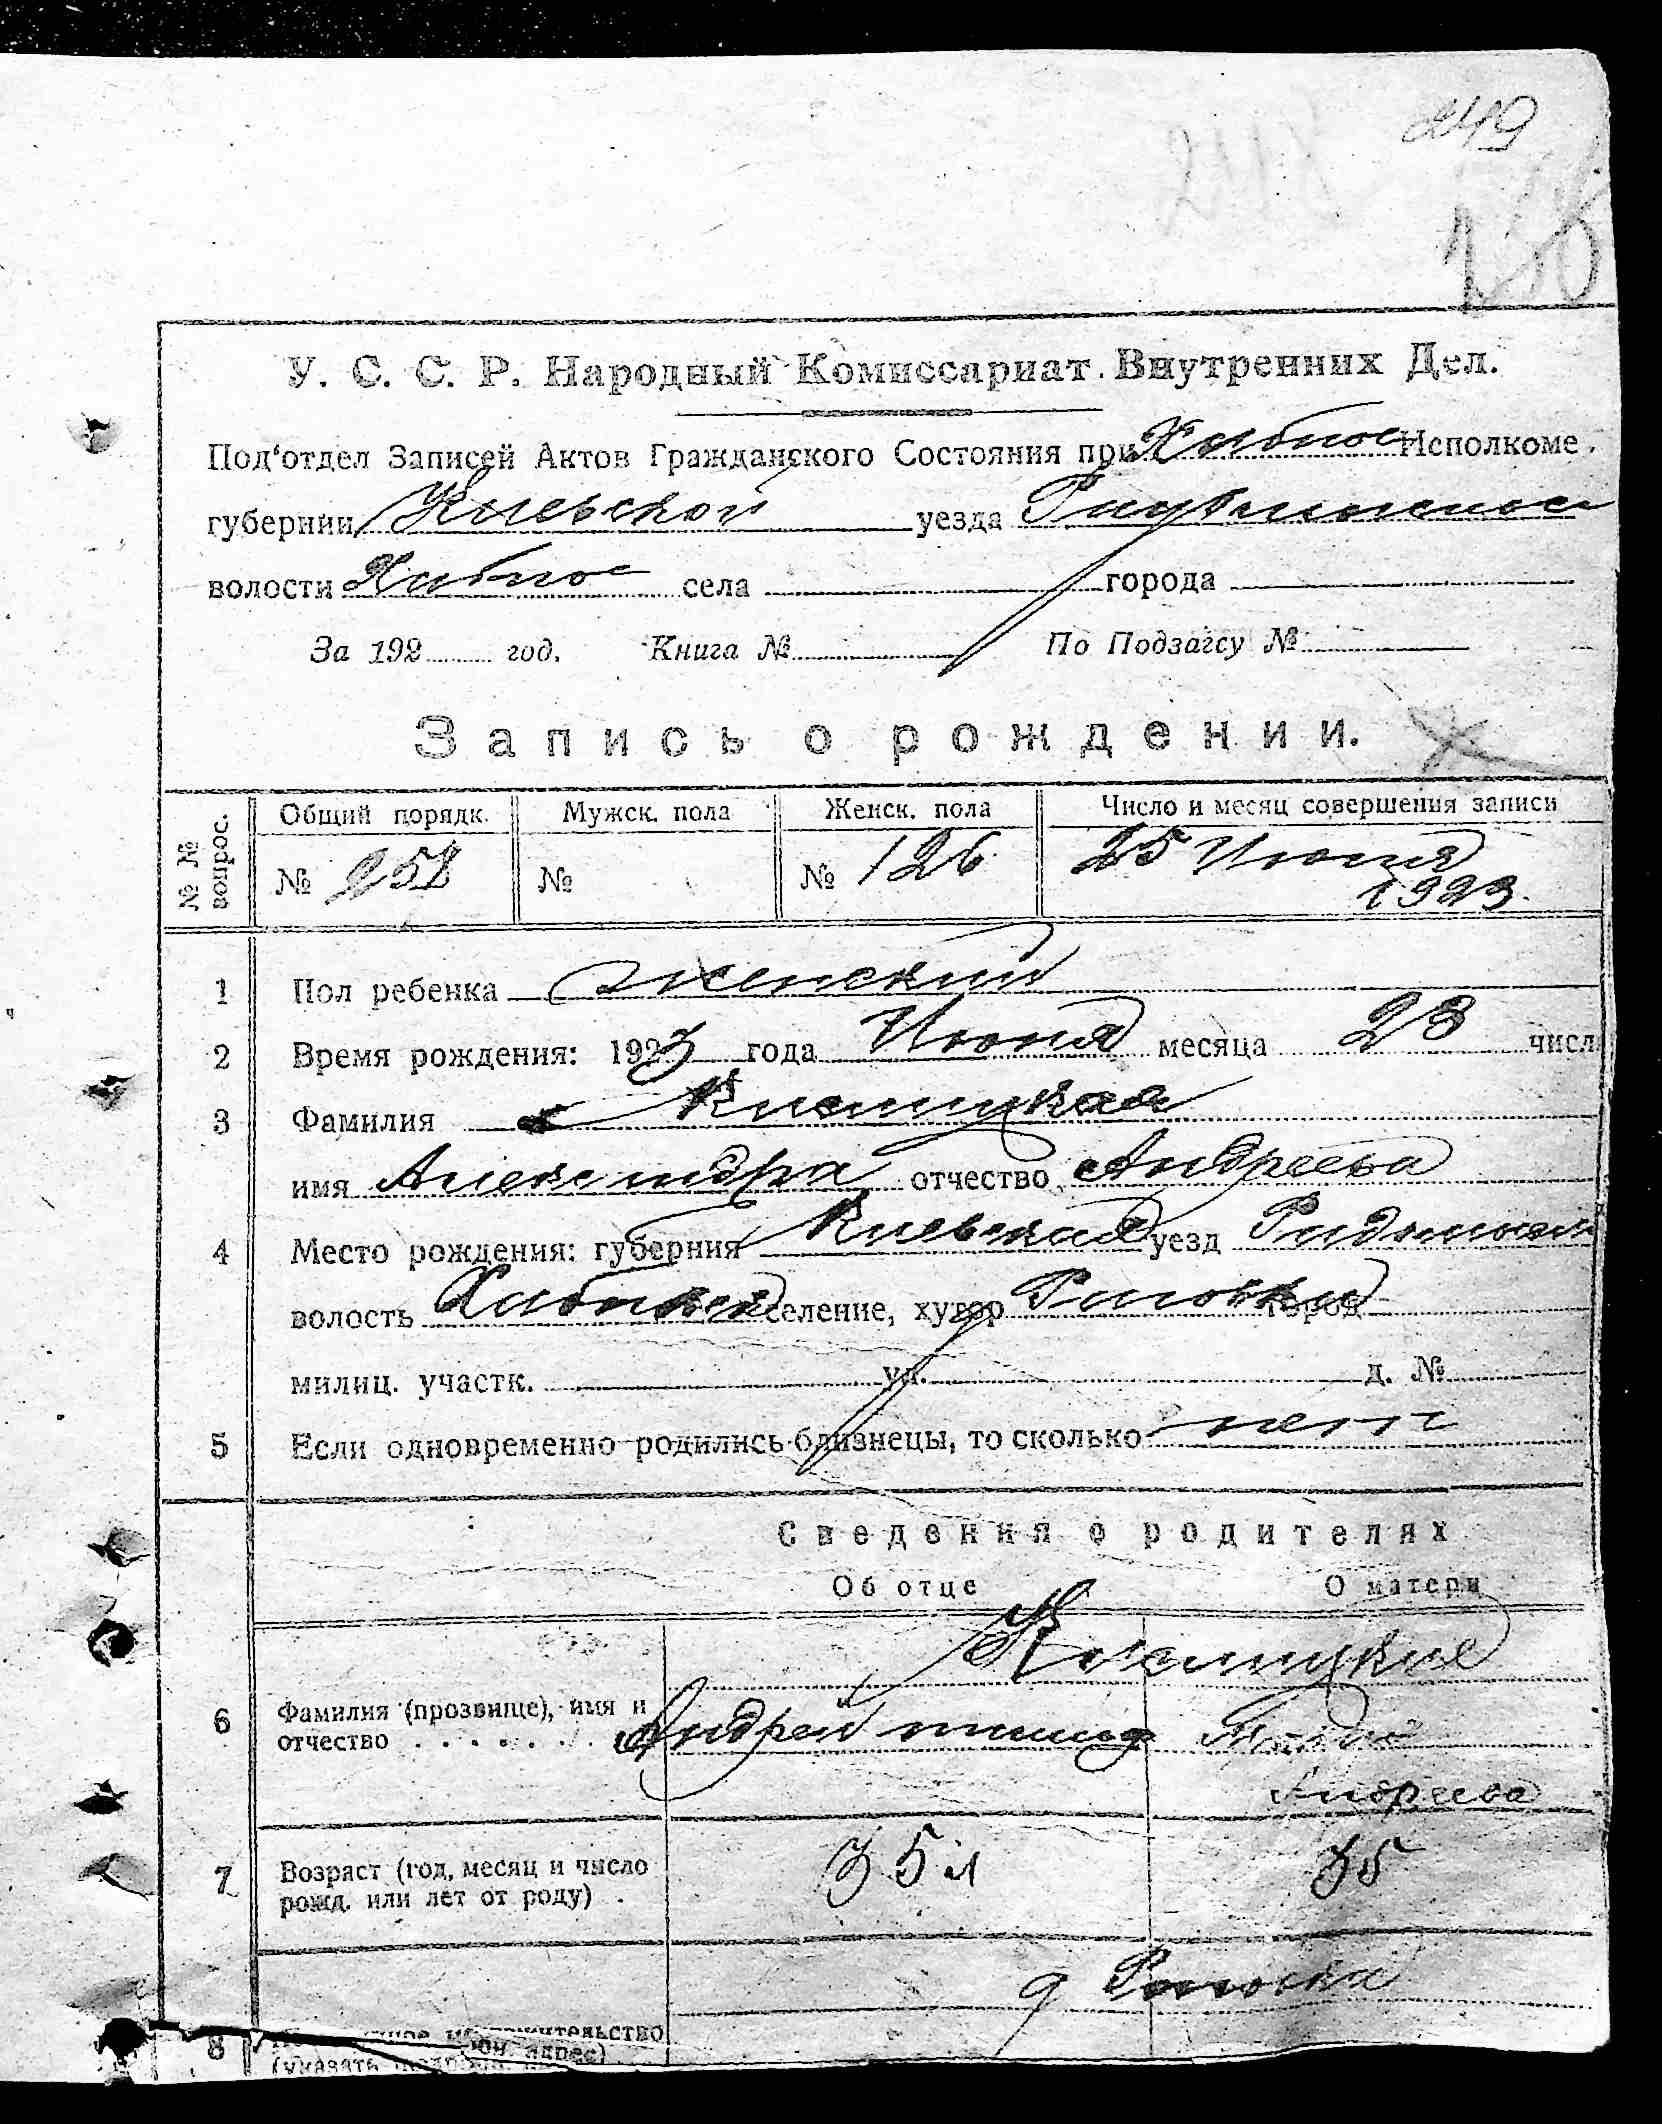 249
У. С. С. Р. Народный Комиссариат Внутренних Дел.
Под'отдел Записей Актов Гражданского Состояния при Хабное Исполкоме.
губернии Киевской уезда
волости Хабное села города
За 192 год. Книга № По Подзагсу №
Запись о рождении.
№ № вопрос. Общий порядк. Мужск. пола Женск. пола Число и месяц совершения записи
№ 258 № № 126 25 Июня
1923.
1 Пол ребенка женский
2 Время рождения: 1923 года Июня месяца 23 числ
3 Фамилия
имя Александра отчество Андреева
4 Место рождения: губерния Киевская уезд
волость селение, хутор город
милиц. участк. ул. д. №
5 Если одновременно родились близнецы, то сколько нет
Сведения о родителях
Об отце О матери
6 Фамилия (прозвище), имя и
отчество . . . . . . Андрей
Андреева
7 Возраст (год, месяц и число
рожд. или лет от роду) . 35 л 35
д
8
(указать адрес)